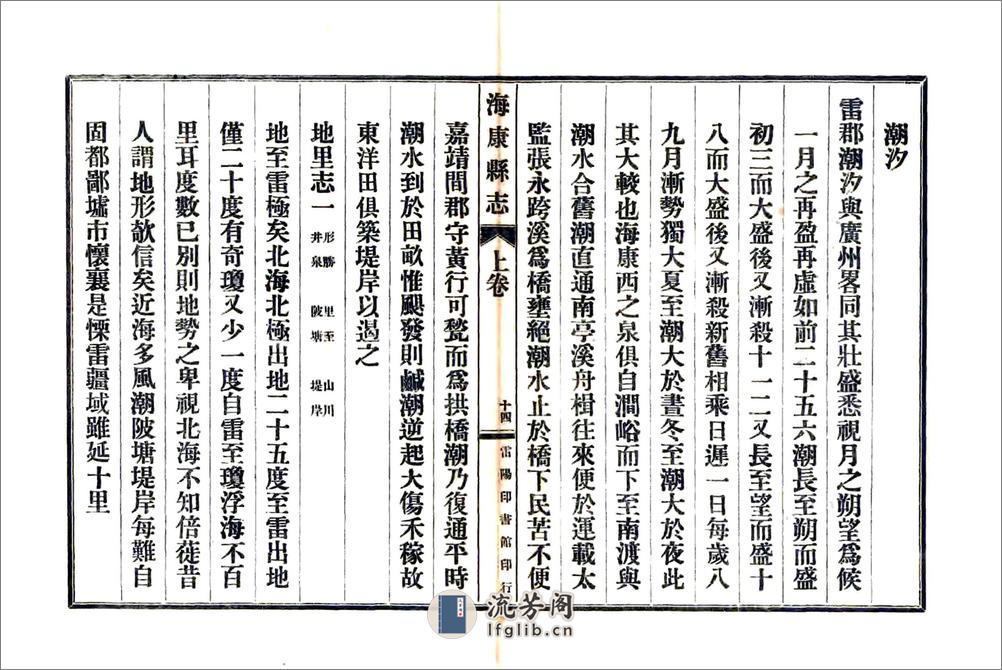 潮汐
雷郡潮汐與廣州畧同其壯盛悉視月之朔望爲候
一月之再盈再虛如前二十五六潮長至朔而盛
初三而大盛後又漸殺十一二又長至望而盛十
八而大盛後又漸殺新舊相乘日遲一日每歲八
九月漸勢獨大夏至潮大於晝冬至潮大於夜此
其大較也海康西之泉俱自澗峪而下至南渡與
潮水合舊潮直通南亭溪舟楫往來便於運載太
監張永跨溪爲橋壅絕潮水止於橋下民苦不便
海康縣志
上卷
十四
雷陽印書館印行
嘉靖間郡守黃行可甃而爲拱橋潮乃復通平時
潮水到於田畝惟颶發則鹹潮逆起大傷禾稼故
東洋田俱築堤岸以遏之
地里志一 形勝 里至 山川 井泉 陂塘 堤岸
地至雷極矣北海北極出地二十五度至雷出地
僅二十度有奇瓊又少一度自雷至瓊浮海不百
里耳度數已別則地勢之卑視北海不知倍徙昔
人謂地形欹信矣近海多風潮陂塘堤岸每難自
固都鄙墟市懷襄是慄雷疆域雖延十里
流芳阁
lfglib.cn